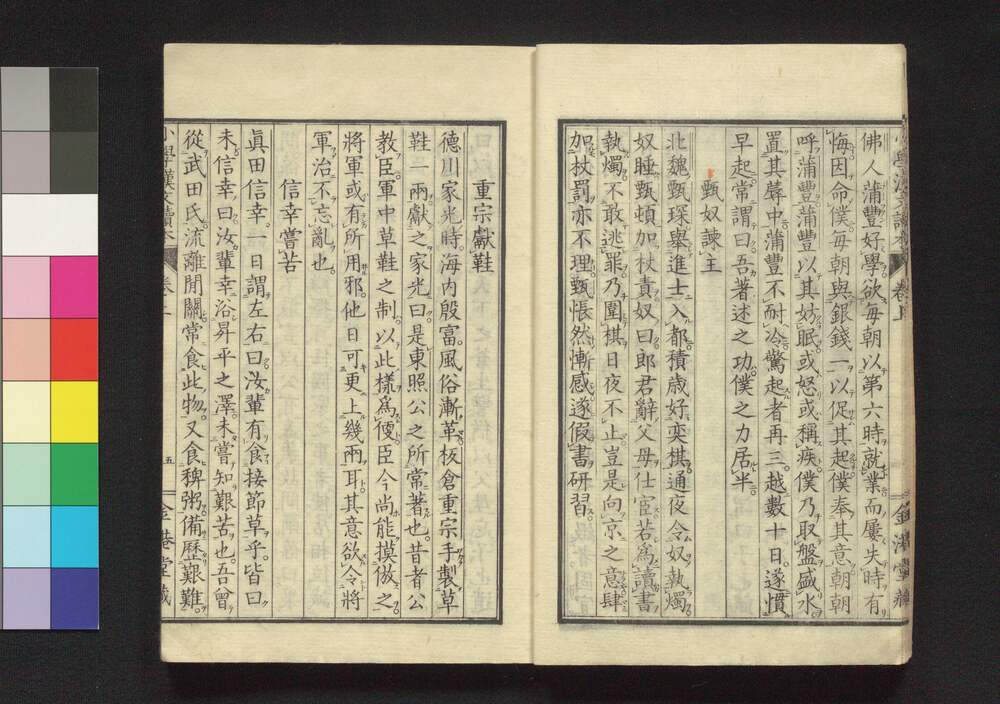 佛人蒲豐好學欲每朝以第六時就業而屢失時有
悔因命僕每朝與銀錢一以促其起僕奉其意朝朝
呼蒲豐蒲豐以其妨眠或怒或稱疾僕乃取盤盛水
置其蓐中蒲豐不耐冷驚起者再三越數十日遂慣
早起常謂曰吾著述之功僕之力居半
甄奴諫主
北魏甄琛舉進士入都積歲好奕棋通夜令奴執燭
奴睡甄頓加杖責奴曰郎君辭父母仕宦若爲讀書
執燭不敢逃罪乃圍棋日夜不止豈是向京之意肆
加杖罰亦不理甄悵然慚感遂假書研習
重宗獻鞋
德川家光時海内殷富風俗漸革板倉重宗手製草
鞋一兩獻之家光曰是東照公之所常著也昔者公
教臣軍中草鞋之制以此樣爲便臣今尚能摸倣之
將軍或有所用邪他日可更上幾兩耳其意欲令將
軍治不忘亂也
信幸嘗苦
眞田信幸一日謂左右曰汝輩有食接節草乎皆曰
未信幸曰汝輩幸浴昇平之澤未嘗知艱苦也吾曾
從武田氏流離間關常食此物又食稗粥備歷艱難
小學漢文讀本 卷上 五 金港堂藏